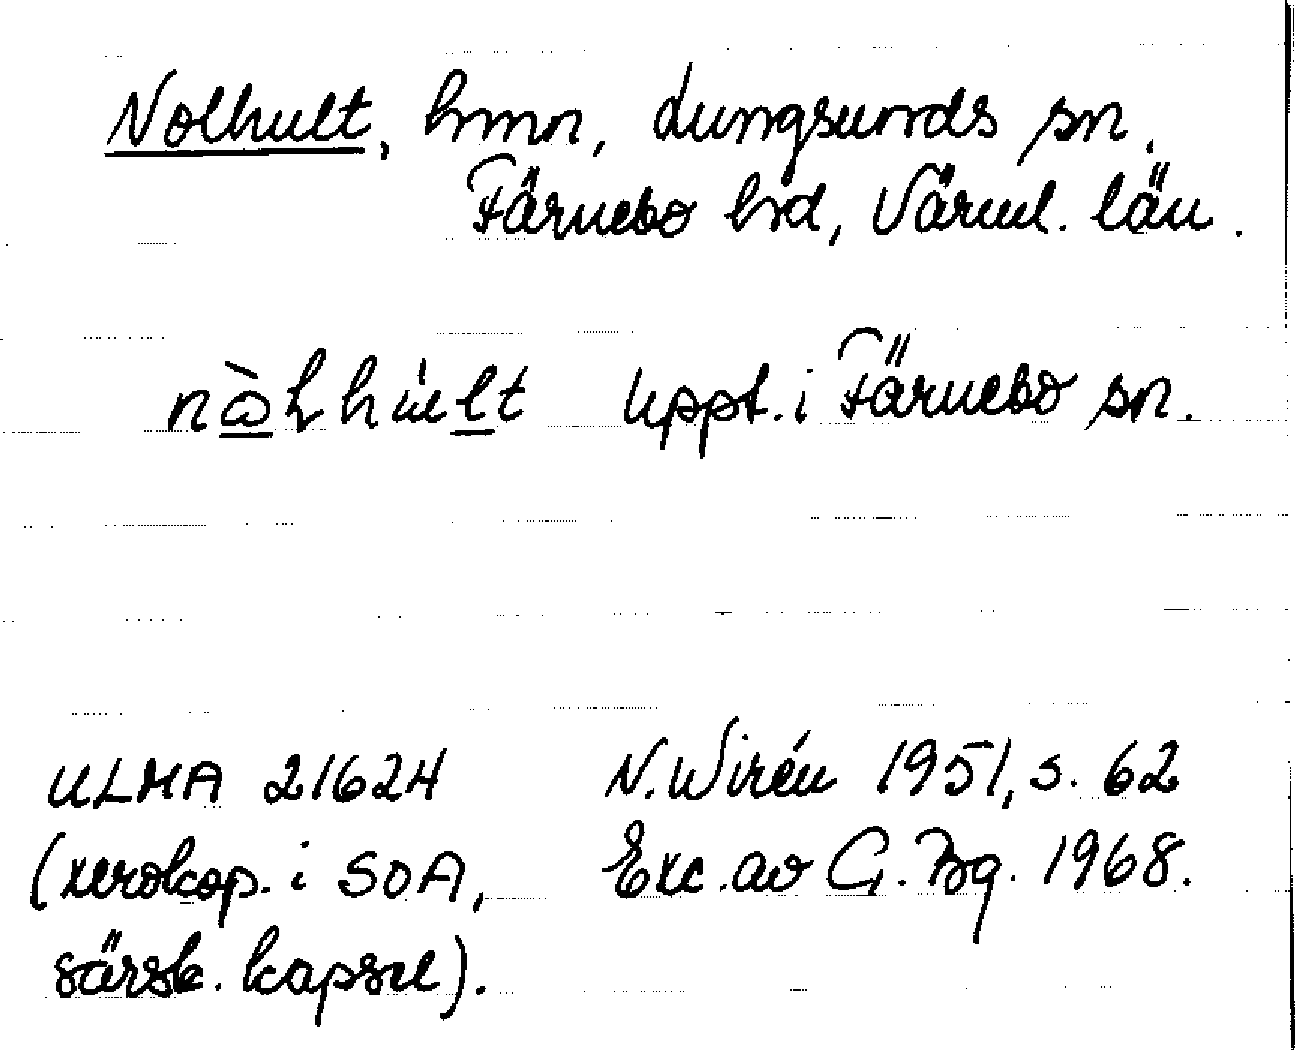 Nolhult, hmn, Lungsunds sn.
Färnebo hd, Värml. län.
Uppt. i Färnebo sn.
ULMA 21624 N. Wirén 1951, s. 62
(xerokop. i SOA, Exc. av G. Bg. 1968.
särsk. kapsel).